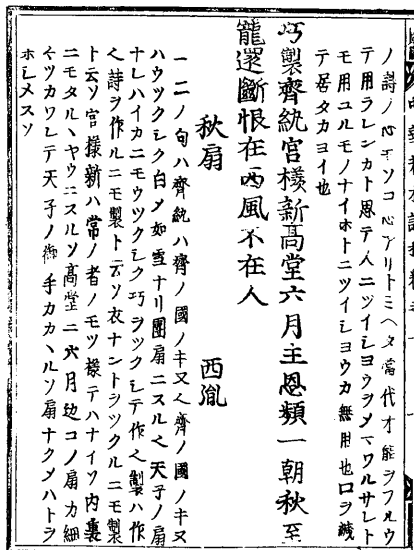 ノ詩ノ心モソコ心アリトミヘタ當代才能ヲフルウ
テ用ラレンカト思テ人ニツイシヨウヲメマワルサレト
モ用ユルモノナイホトニツイシヨウカ無用也口ヲ緘
テ居タカヨイ也
巧製齊紈官様新髙堂六月主恩頻一朝秋至
篭還斷恨在西風不在人
秋扇 西胤
一二ノ句ハ齊紈ハ齊ノ國ノキヌ齊ノ國ノキヌ
ハウツクシク白メ如雪ナリ團扇ニスルヘ天子ノ扇
ナレハイカニモウツクシク巧ヲツクシテ作ヘ製ハ作
ヘ詩ヲ作ルニモ製ト云ソ衣ナントヲツクルニモ製
ト云ソ官様新ハ常ノ者ノモツ様テハナイソ内裏
ニモタルヽヤウニスルソ髙堂ニ六月辺コノ扇カ細
々ツカワレテ天子ノ御手カカヽルソ扇ナクメハトヲ
ホシメスソ